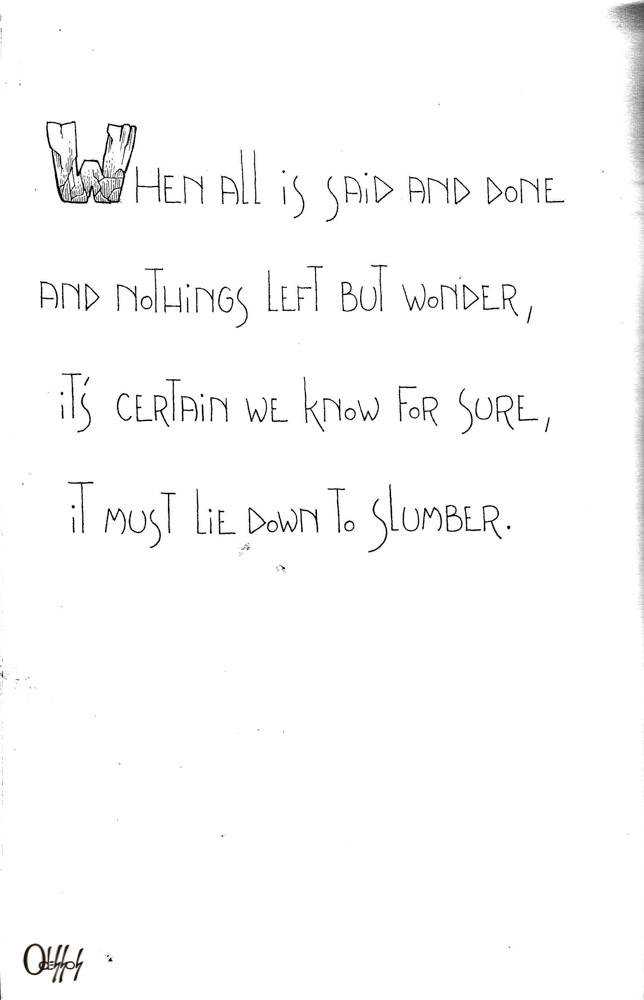 WHEN All iS SAiD AND DONE
AND NOTHiNGS LEFT BUT WONDER,
iT'S CERTAiN WE KNOW FOR SURE,
iT MUST LiE DOWN TO SLUMBER.